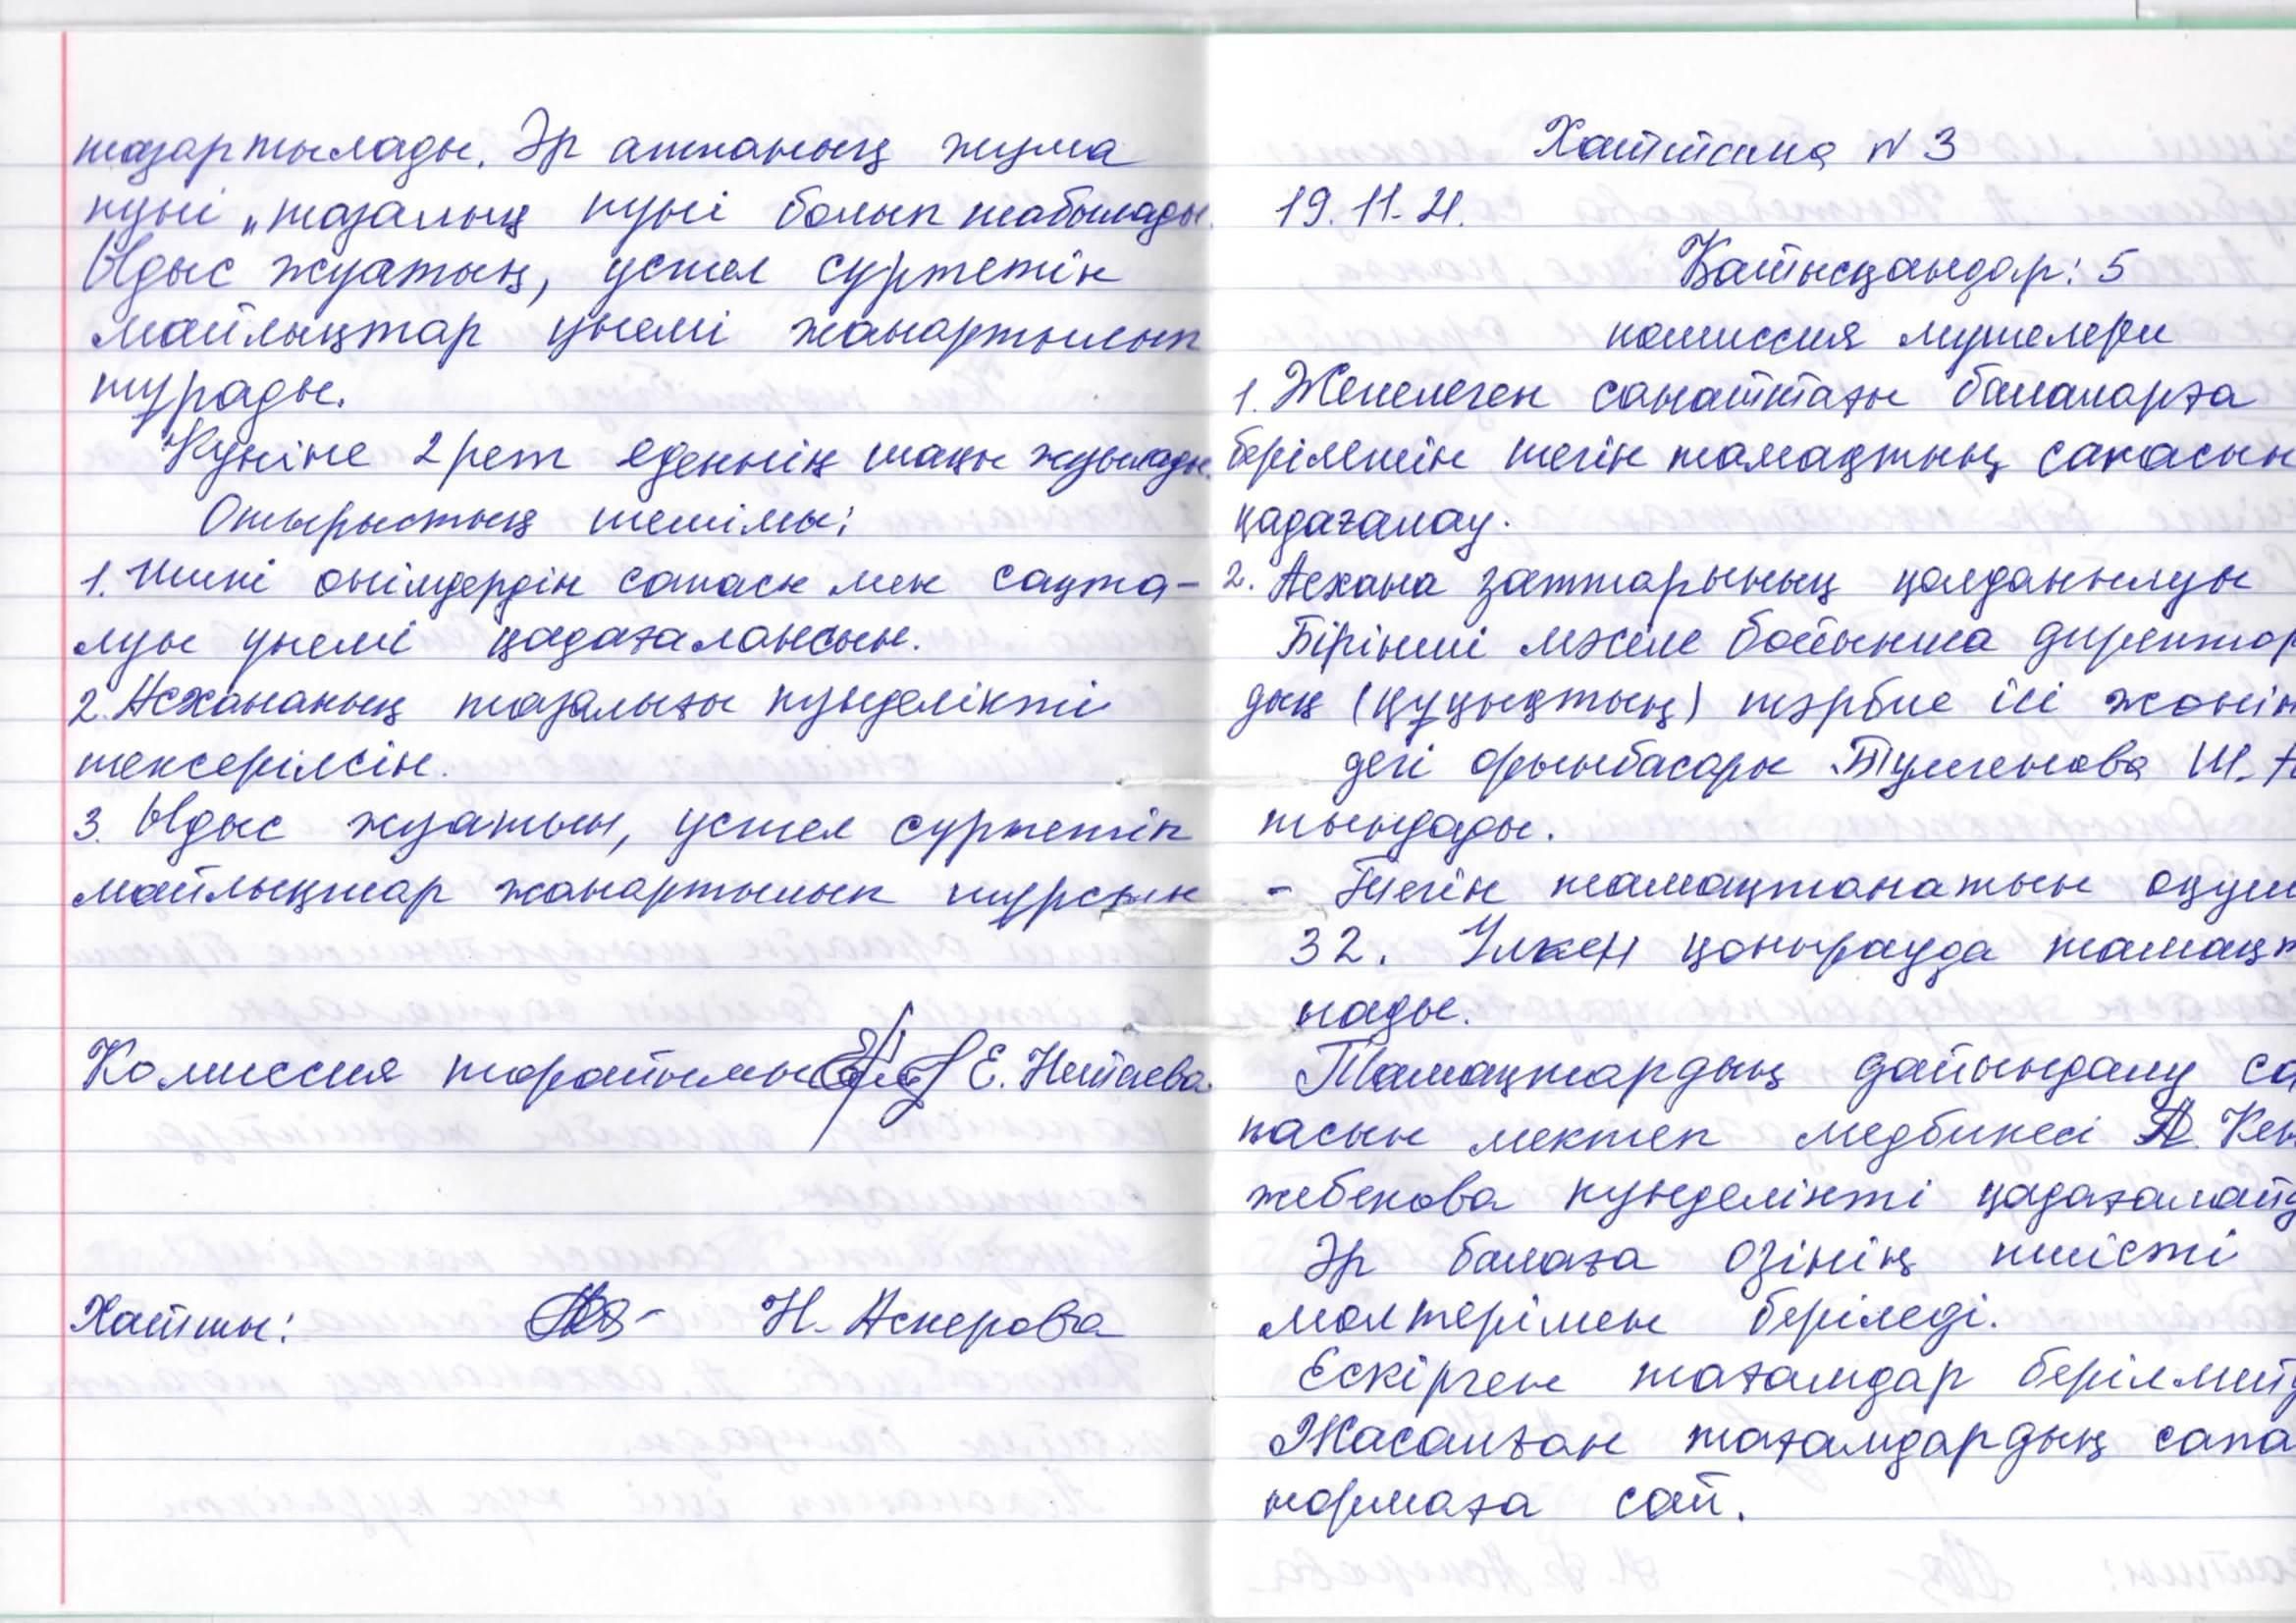 тазартылады. Әр аптаның жұма
күні „тазалық күні болып табылады.
Ыдыс жуатың, үстел сүртетін
майлықтар үнемі жанартылып
тұрады.
Күніне 2 рет еденнің шаңы жуылады.
Отырыстың шешімы:
1. Шикі өнімдердін сапасы мен сақта-
луы үнемі қадағалансын.
2. Асхананың тазалығы күнделікті
тексерілсін.
3. Ыдыс жуатын, үстел сүртетін
майлықтар жанартылып тұрсын
Комиссия торайымы Е. Нитаева.
Хатшы: Н. Аскерова
Хаттама № 3
19. 11. 21.
Қатысқандар: 5
комиссия мүшелери
1. Женелеген санаттағы балаларға
берілетін тегін тамақтың сапасын
қадағалау.
2. Асхана заттарының қолданылуы
Бірінші мәселе бойынша директор
дың (құқықтың) тәрбие ісі жөнін
дегі орынбасары Тулегенова Ш. А
тыңдады.
- Тегін тамақтанатын оқуш
32. Үлкен қоңырауда тамақт
нады.
Тамақтардың дайындалу са
пасын мектеп медбикесі А. Кен
жебекова күнделікті қадағалайд
Әр балаға өзінің тиісті
мөлтерімен беріледі.
Ескірген тағамдар берілмейд
Жасанған тағамдардың сапа
нормаға сай.